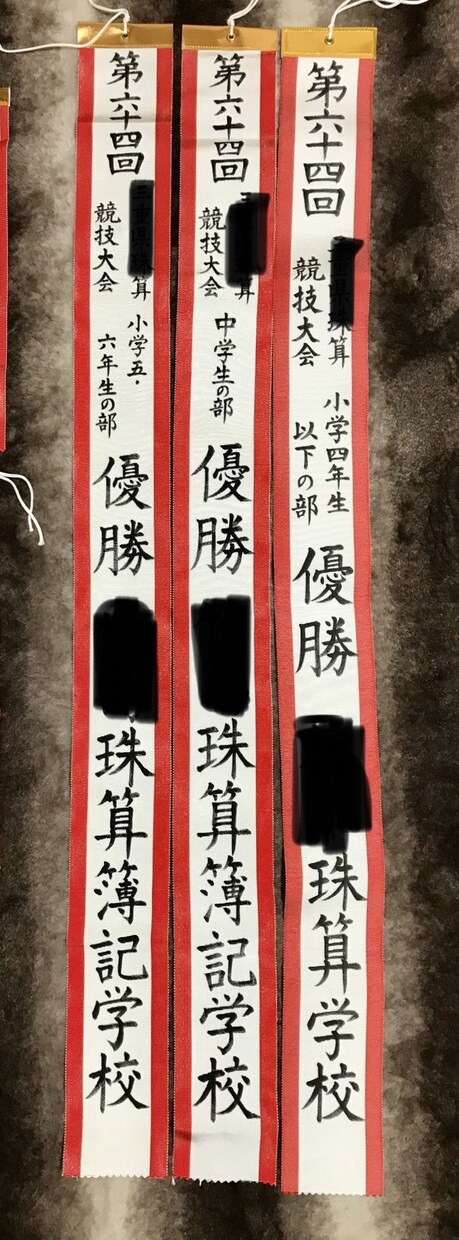 第六十四回
珠算
競技大会
小学四年生
以下の部
優勝
珠算学校
第六十四回
算
競技大会
中学生の部
優勝
珠算簿記学校
第六十四回
算
競技大会
小学五・
六年生の部
優勝
珠算簿記学校